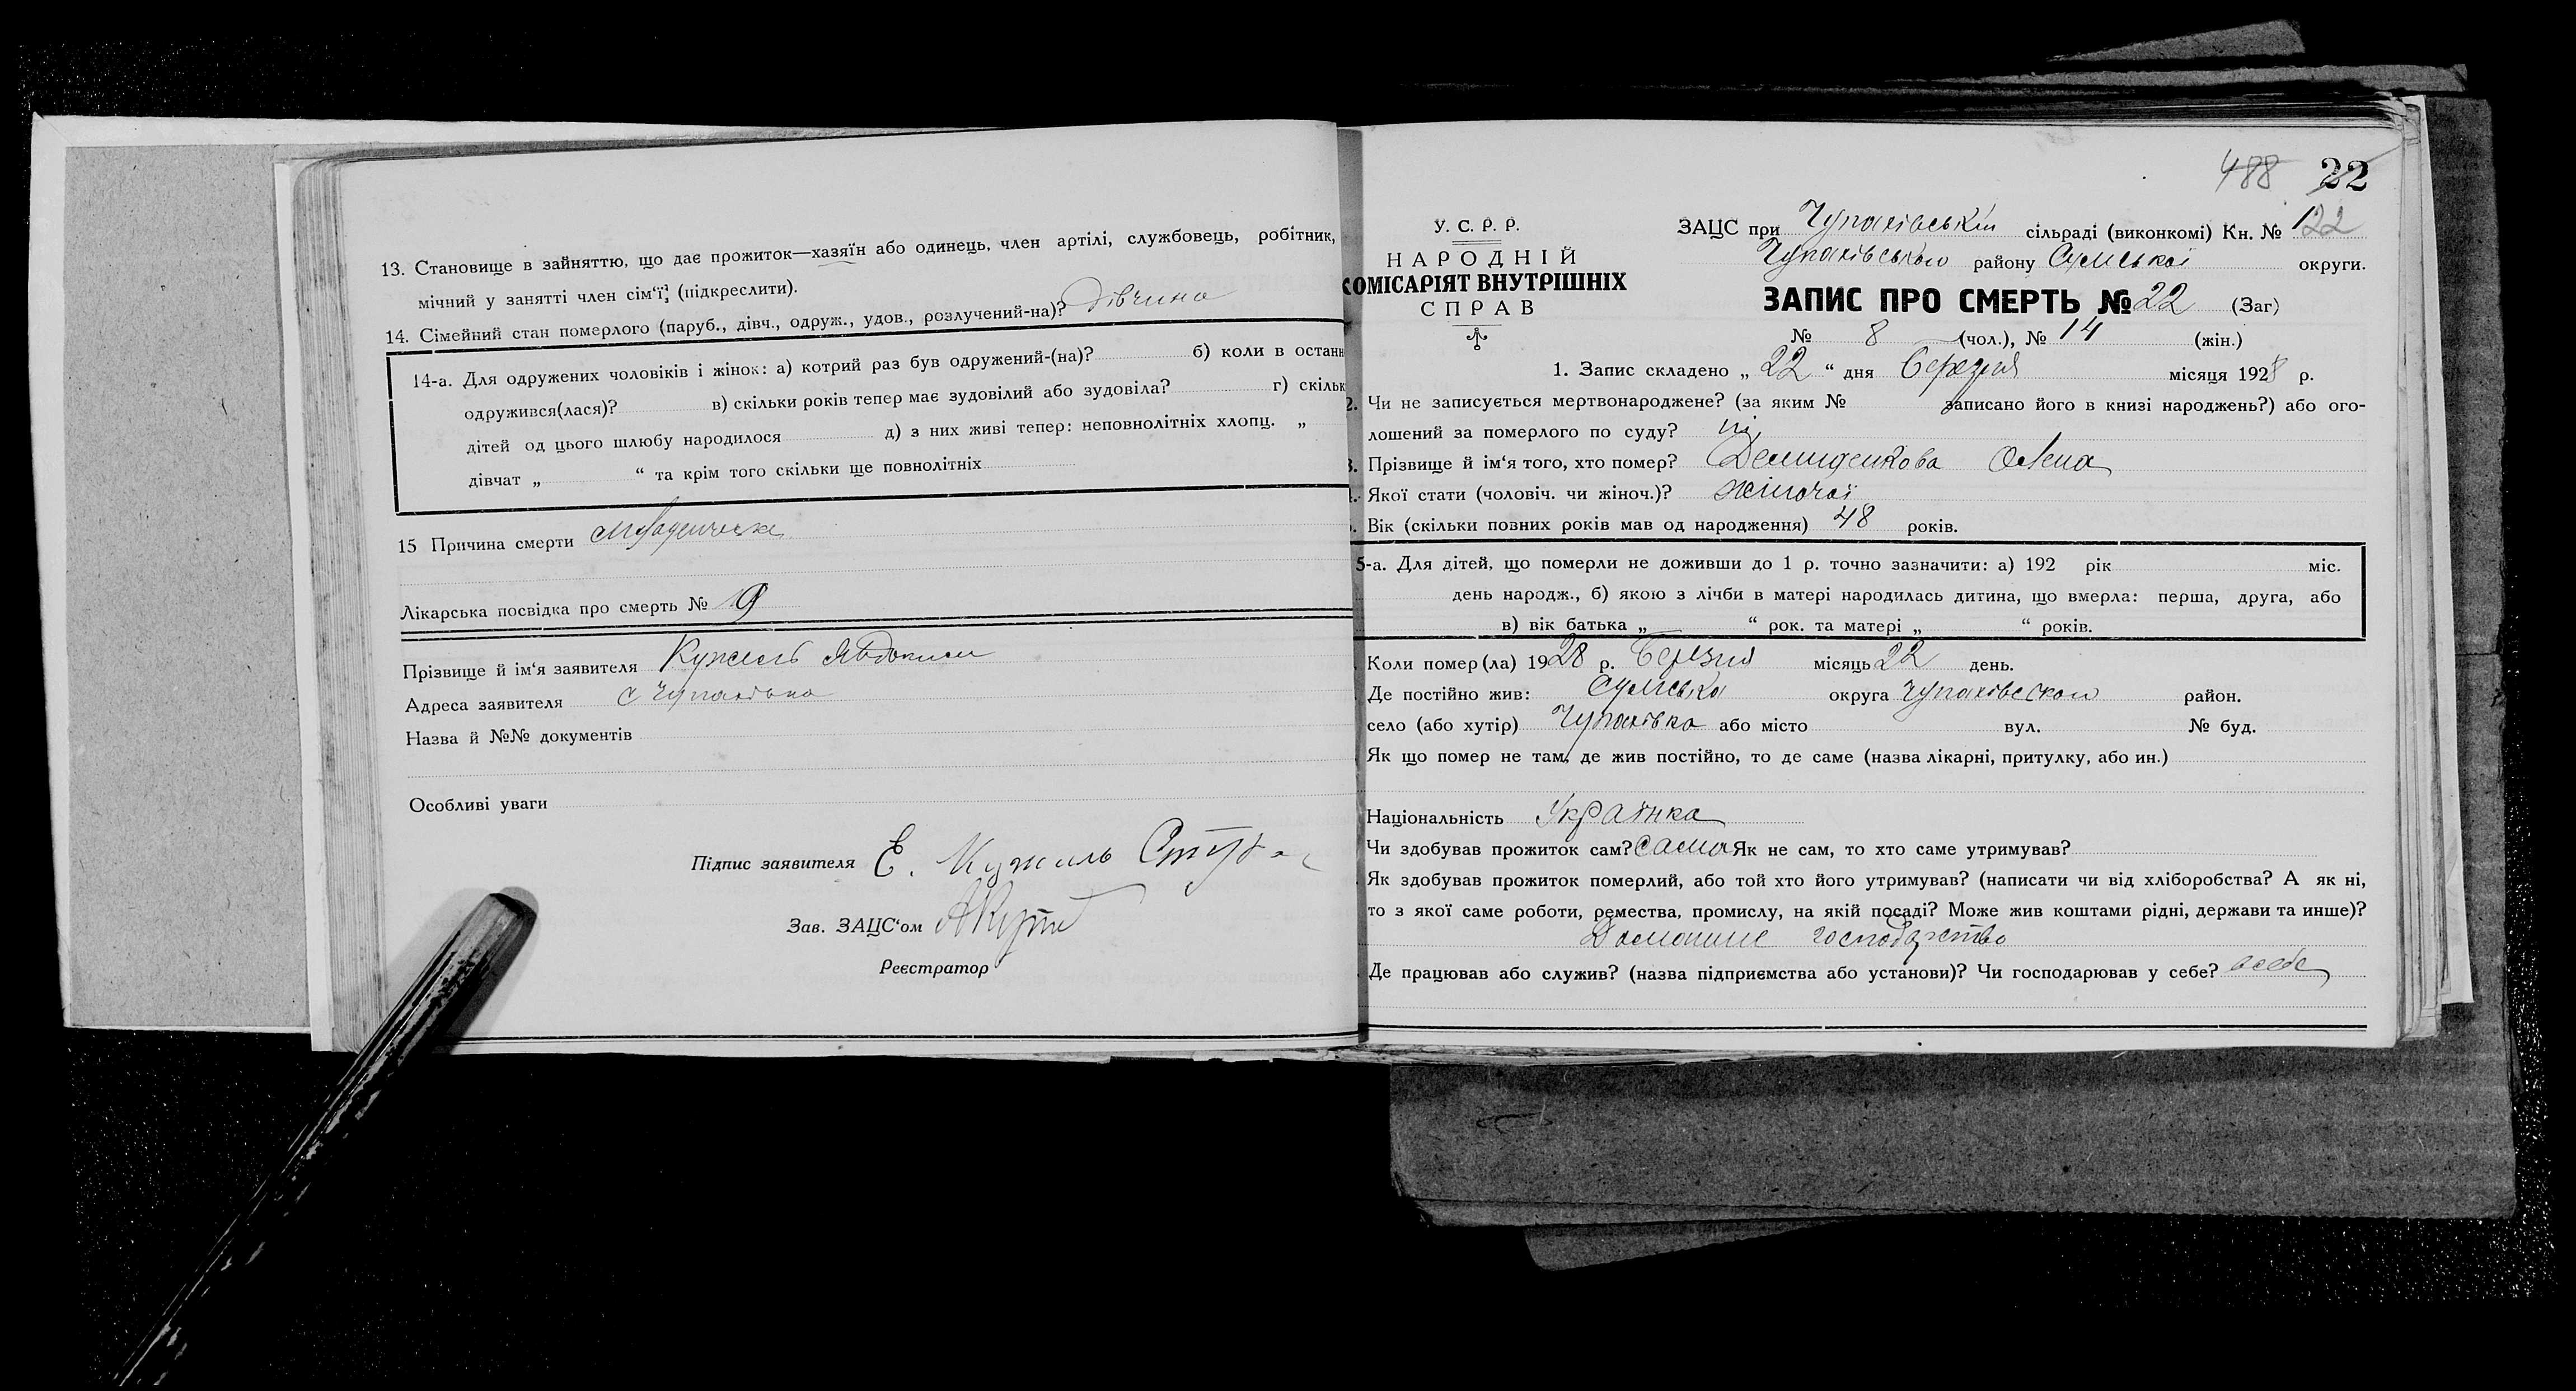 13. Становище в зайняттю, що дає прожиток—хазяїн або одинець, член артілі, службовець, робітник,
мічний у занятті член сім'ї (підкреслити).
14. Сімейний стан померлого (паруб., дівч., одруж., удов., розлучений-на)? дівчина
14-а. Для одружених чоловіків і жінок: а) котрий раз був одружений-(на)? б) коли в останн
одружився(лася)? в) скільки років тепер має зудовілий або зудовіла? г) скільк
дітей од цього шлюбу народилося д) з них живі тепер: неповнолітніх хлопц. „
дівчат „ “ та крім того скільки ще повнолітніх
15 Причина смерти
Лікарська посвідка про смерть № 9
Прізвище й ім'я заявителя Кужель Явдокии
Адреса заявителя с Чупахівка
Назва й №№ документів
Особливі уваги
Підпис заявителя Е. Кужиль
Зав. ЗАЦС'ом
Реєстратор
488 22
У. С. Р. Р.
НАРОДНІЙ
КОМІСАРІЯТ ВНУТРІШНІХ
СПРАВ
ЗАЦС при Чупахівській сільраді (виконкомі) Кн. № 122
Чупахівського району Сумської округи.
ЗАПИС ПРО СМЕРТЬ № 22 (Заг)
№ 8 (чол.), № 14 (жін.)
1. Запис складено „ 22 “ дня Березня місяця 1928 р.
2. Чи не записується мертвонароджене? (за яким № записано його в книзі народжень?) або ого-
лошений за померлого по суду? ні
3. Прізвище й ім'я того, хто помер? Демиденкова Олена
Якої стати (чоловіч. чи жіноч.)? жіночої
Вік (скільки повних років мав од народження) 48 років.
5-а. Для дітей, що померли не доживши до 1 р. точно зазначити: а) 192 рік міс.
день народж., б) якою з лічби в матері народилась дитина, що вмерла: перша, друга, або
в) вік батька „ “ рок. та матері „ “ років.
Коли помер(ла) 1928 р. Березня місяць 22 день.
Де постійно жив: Сумська округа Чупахівского район.
село (або хутір) Чупахівка або місто вул. № буд.
Як що помер не там, де жив постійно, то де саме (назва лікарні, притулку, або ин.)
Національність Українка
Чи здобував прожиток сам? сама Як не сам, то хто саме утримував?
Як здобував прожиток померлий, або той хто його утримував? (написати чи від хліборобства? А як ні,
то з якої саме роботи, ремества, промислу, на якій посаді? Може жив коштами рідні, держави та инше)?
Домашнє господарство
Де працював або служив? (назва підприємства або установи)? Чи господарював у себе? в себе